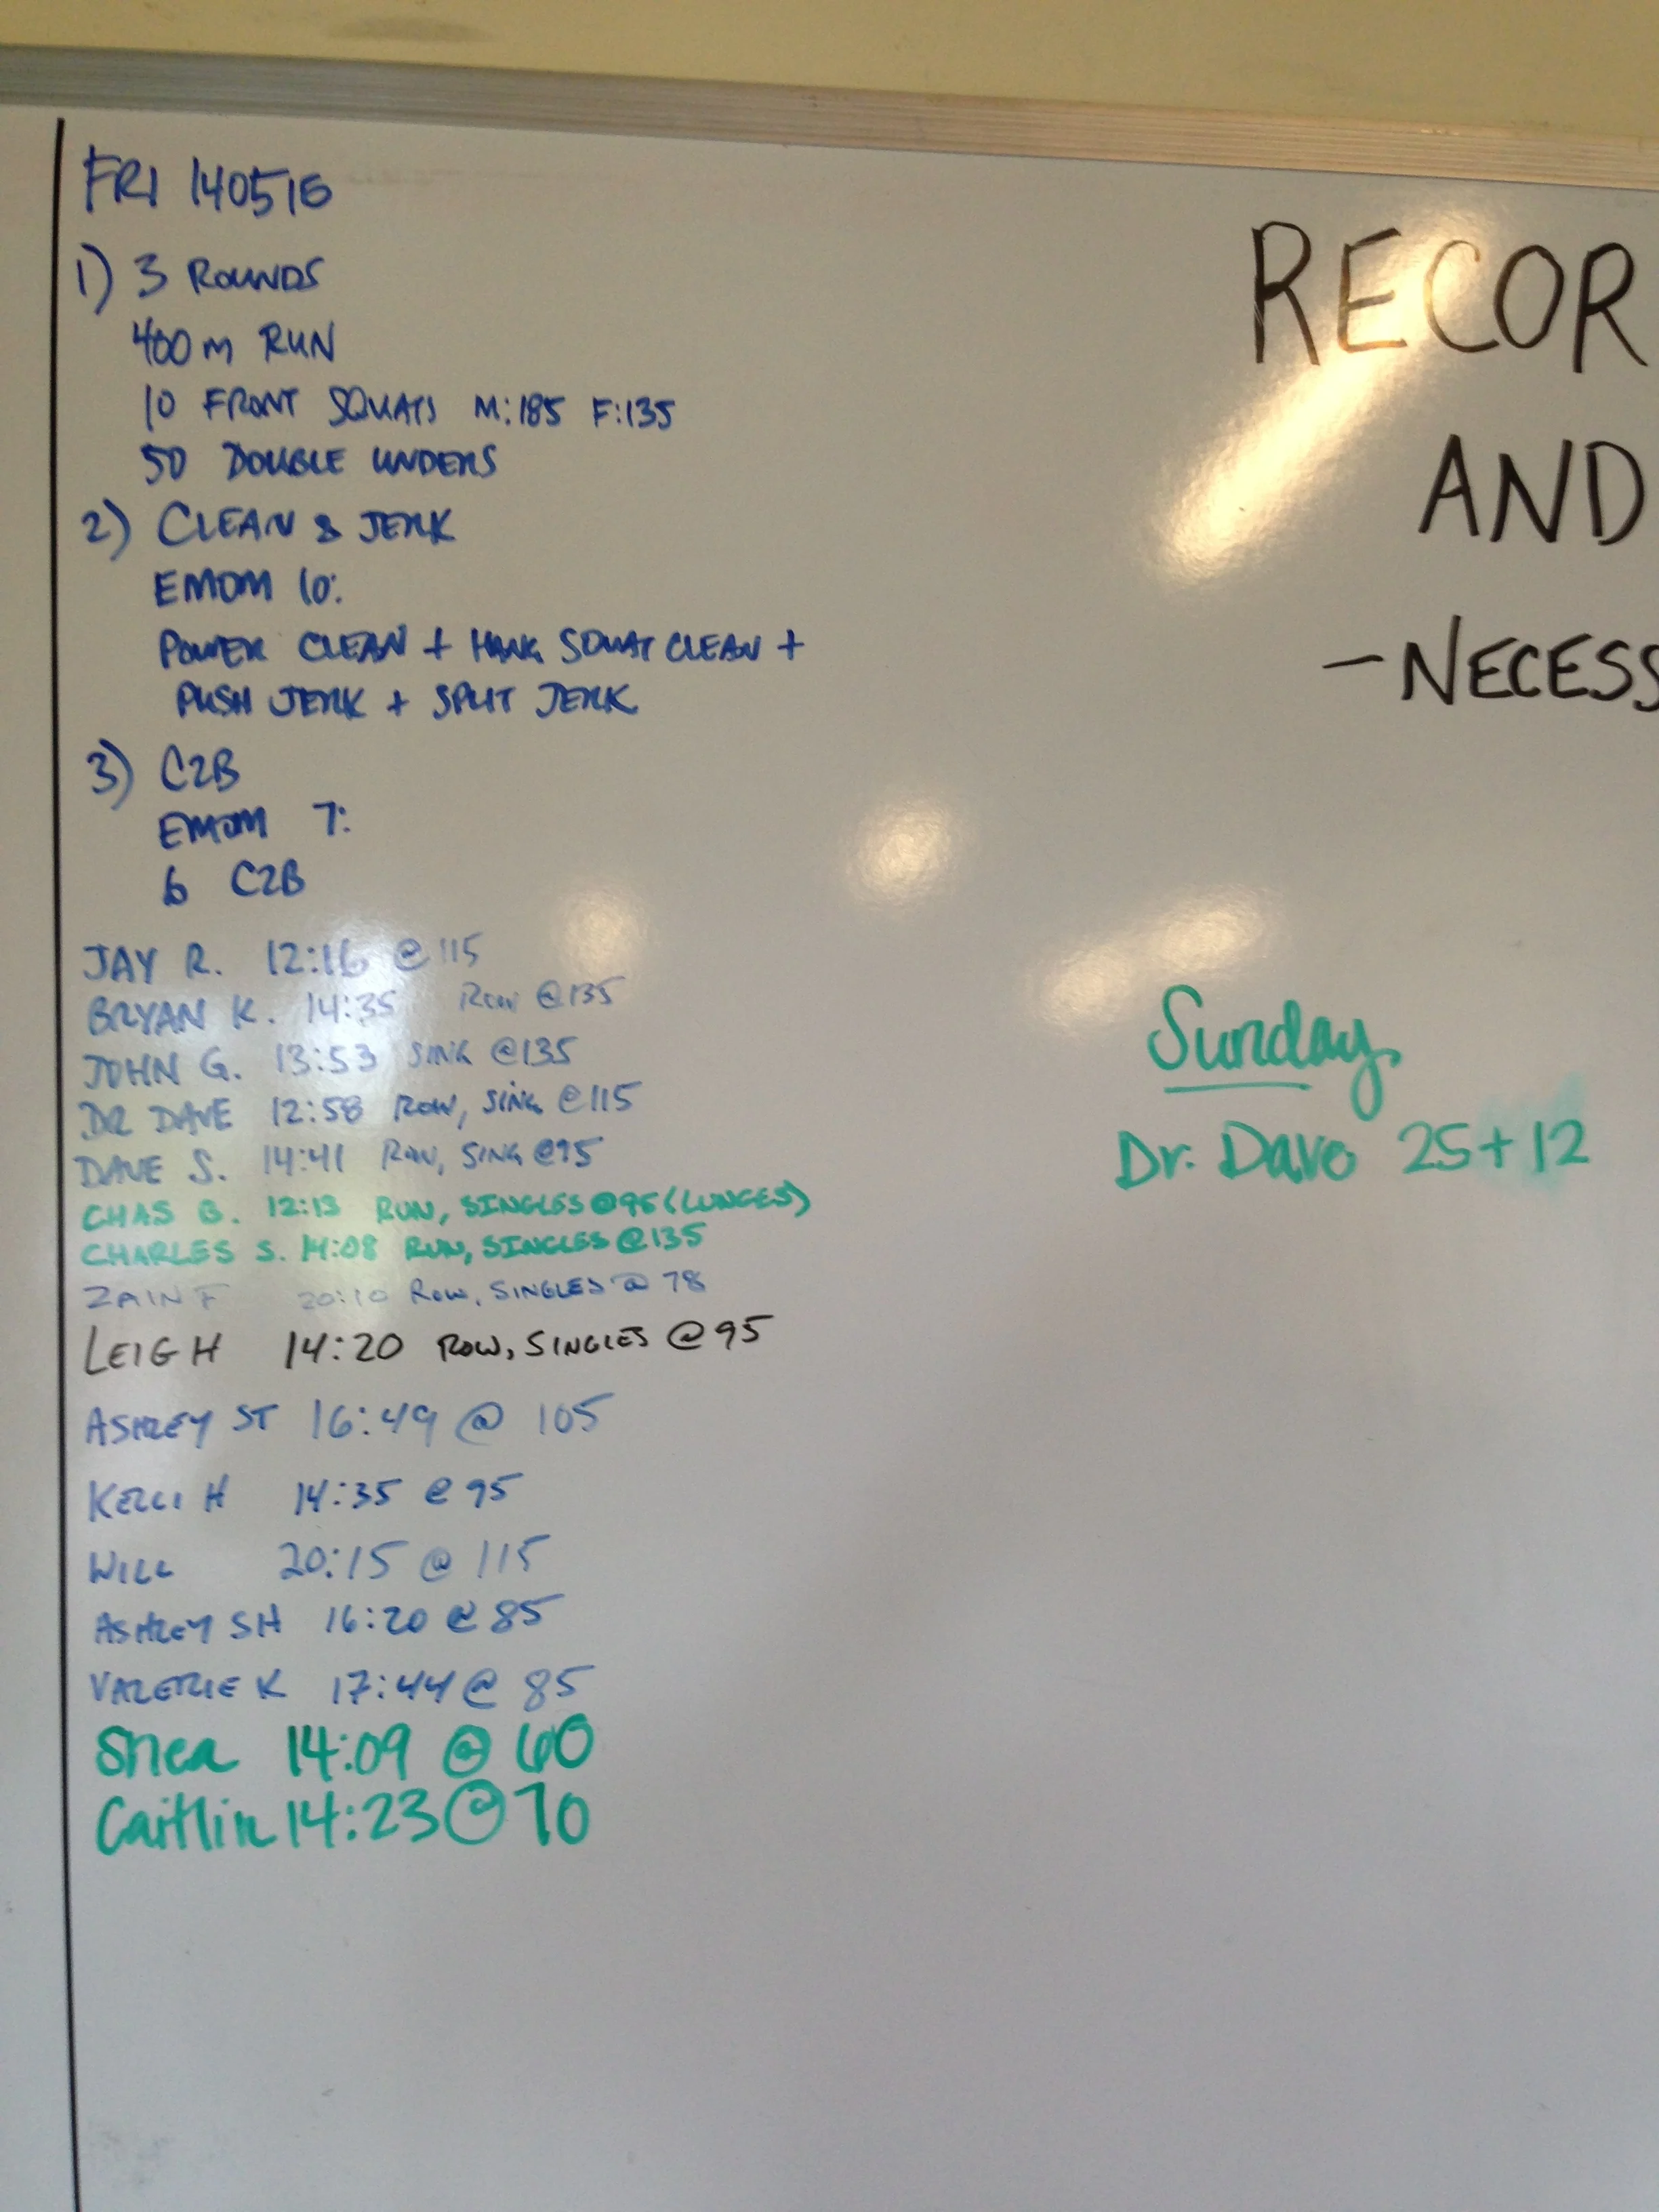 FRI 140516
1) 3 ROUNDS
400m RUN
10 FRONT SQUATS M:185 F:135
50 DOUBLE UNDERS
2) CLEAN & JERK
EMOM 10:
POWER CLEAN + HANG SQUAT CLEAN +
PUSH JERK + SPLIT JERK
3) C2B
EMOM 7:
6 C2B
JAY R. 12:16 @ 115
BRYAN K. 14:35 ROW @135
JOHN G. 13:53 SING @135
DR DAVE 12:58 ROW, SING @115
DAVE S. 14:41 ROW, SING @95
CHAS B. 12:13 RUN, SINGLES @95 (LUNGES)
CHARLES S. 14:08 RUN, SINGLES @135
ZAIN F 20:10 ROW, SINGLES @ 78
LEIGH 14:20 ROW, SINGLES @95
ASHLEY ST 16:49 @ 105
KELLI H 14:35 @ 95
WILL 20:15 @ 115
ASHLEY SH 16:20 @ 85
VALERIE K 17:44 @ 85
Shea 14:09 @ 60
Caitlin 14:23 @ 70
RECOR
AND
- NECESS
Sunday
Dr. Dave 25+12